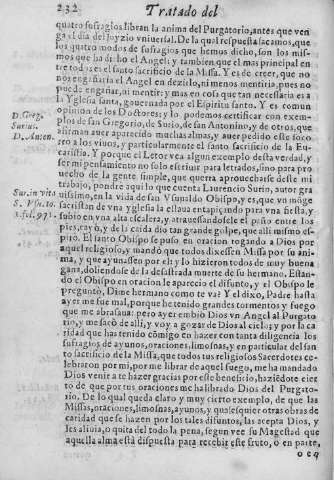 232. Tratado del
quatro sufragios libran la anima del Purgatorio, antes que ven
ga el dia del juyzio vniuersal. De la qual respuesta sacamos, que
los quatro modos de sufragios que hemos dicho, son los mis-
mos que ha dicho el Angel; y tambien que el mas principal en
tre todos es el santo sacrificio de la Missa. Y es de creer, que no
nos engañaria el Angel en dezirlo, ni menos mentiria, pues no
puede engañar, ni mentir; y mas en cosa que tan necessaria es a
la Yglesia santa, gouernada por el Espiritu santo. Y es comun
D. Greg. opinion de los Doctores: y lo podemos certificar con exem-
Surius. plos de san Gregorio, de Surio, de san Antonino, y de otros, que
D. Anton. afirman auer aparecido muchas almas, y auer pedido este soco-
rro a los viuos, y particularmente el santo sacrificio de la Eu-
caristia. Y porque el Letor vea algun exemplo desta verdad, y
ser mi pensamiento no solo escriuir para letrados, sino para pro
uecho de la gente simple, que querra aprouecharse deste mi
trabajo, pondre aqui lo que cuenta Laurencio Surio, autor gra
Sur. in vita uissimo, en la vida de san Vsualdo Obispo, y es que, vn móge
sacristan de vna Yglesia
subio en vna alta escalera, y atrauessandosele el pesto entre los
pies, cayó, y de la caida dio tan grande golpe, que alli mismo es-
piró. El santo Obispo se puso en oracion rogando a Dios por
aquel religioso, y mandó que todos dixessen Missa por su ani-
ma, y que ayunassen por el: y lo hizieron todos de muy buena
gana, doliendose de la desastrada muerte de su hermano. Estan-
do el Obispo en oracion le aparecio el difunto, y el Obispo le
preguntó, Dime hermano como te va? Y el dixo, Padre hasta
ayer me fue mal, porque he tenido grandes tormentos y fuego
que me abrasaua: pero ayer embió Dios vn Angel al Purgato
rio, y me sacó de alli, y voy a gozar de Dios al cielo; y por la ca
ridad que has tenido cõmigo en hazer con tanta diligencia los
sufragios de ayunos, oraciones, limosnas, y en particular del san
to sacrificio de la Missa, que todos tus religiosos Sacerdotes ce-
lebraron por mi, por me librar de aquel fuego, me ha mandado
Dios venir a te hazer gracias por este beneficio, haziẽdote cier
to de que por tus oraciones me ha librado Dios del Purgato-
rio. De lo qual queda claro y muy cierto exemplo, de que las
Missas, oraciones, limosnas, ayunos, y qualesquier otras obras de
caridad que se hazen por los tales difuntos, las acepta Dios, y
les aliuia, o quita del todo la pena, segun vee su Magestad que
aquella alma está dispuesta para recebir este fruto, o en parte,